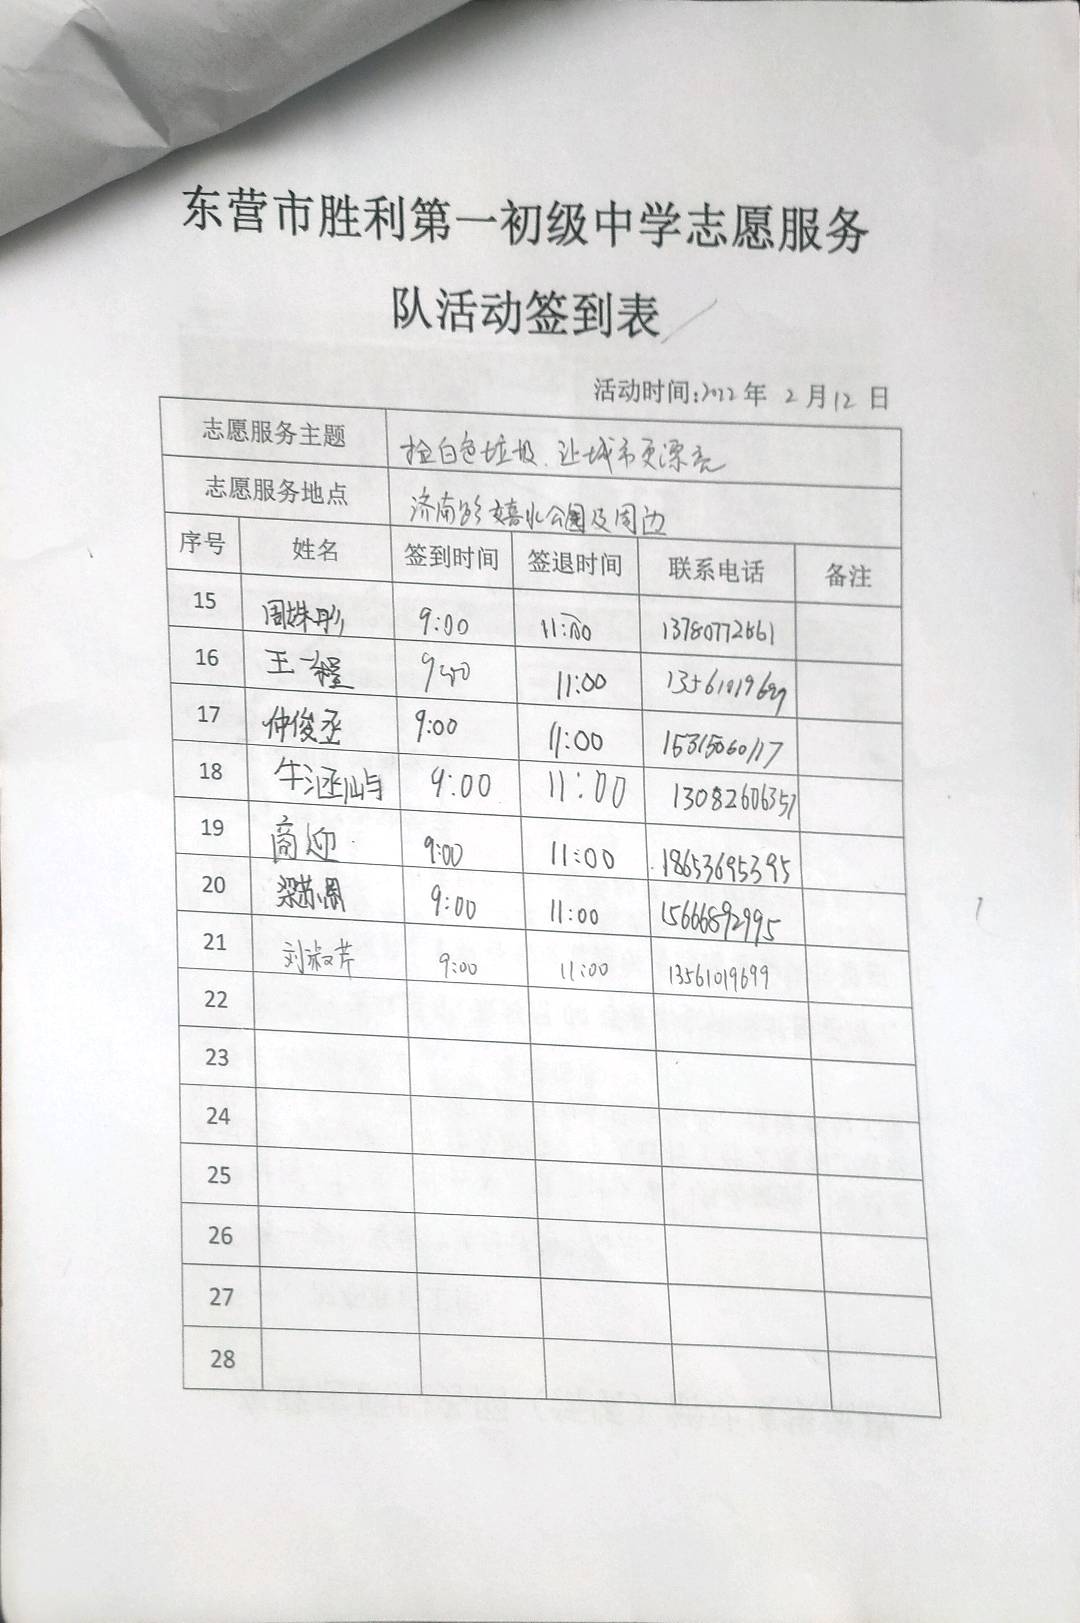 东营市胜利第一初级中学志愿服务
队活动签到表
活动时间:2022年 2月12日
志愿服务主题 捡白色垃圾、让城市更漂亮
志愿服务地点 济南路嬉水公园及周边
序号 姓名 签到时间 签退时间 联系电话 备注
15 周姝彤 9:00 11:00 13780772861
16 王一程 9:00 11:00 13561019699
17 仲俊丞 9:00 11:00 15315060117
18 牛涵屿 9:00 11:00 13082606357
19 商迎 9:00 11:00 18653695395
20 梁 9:00 11:00 15666892995
21 刘淑芹 9:00 11:00 13561019699
22
23
24
25
26
27
28